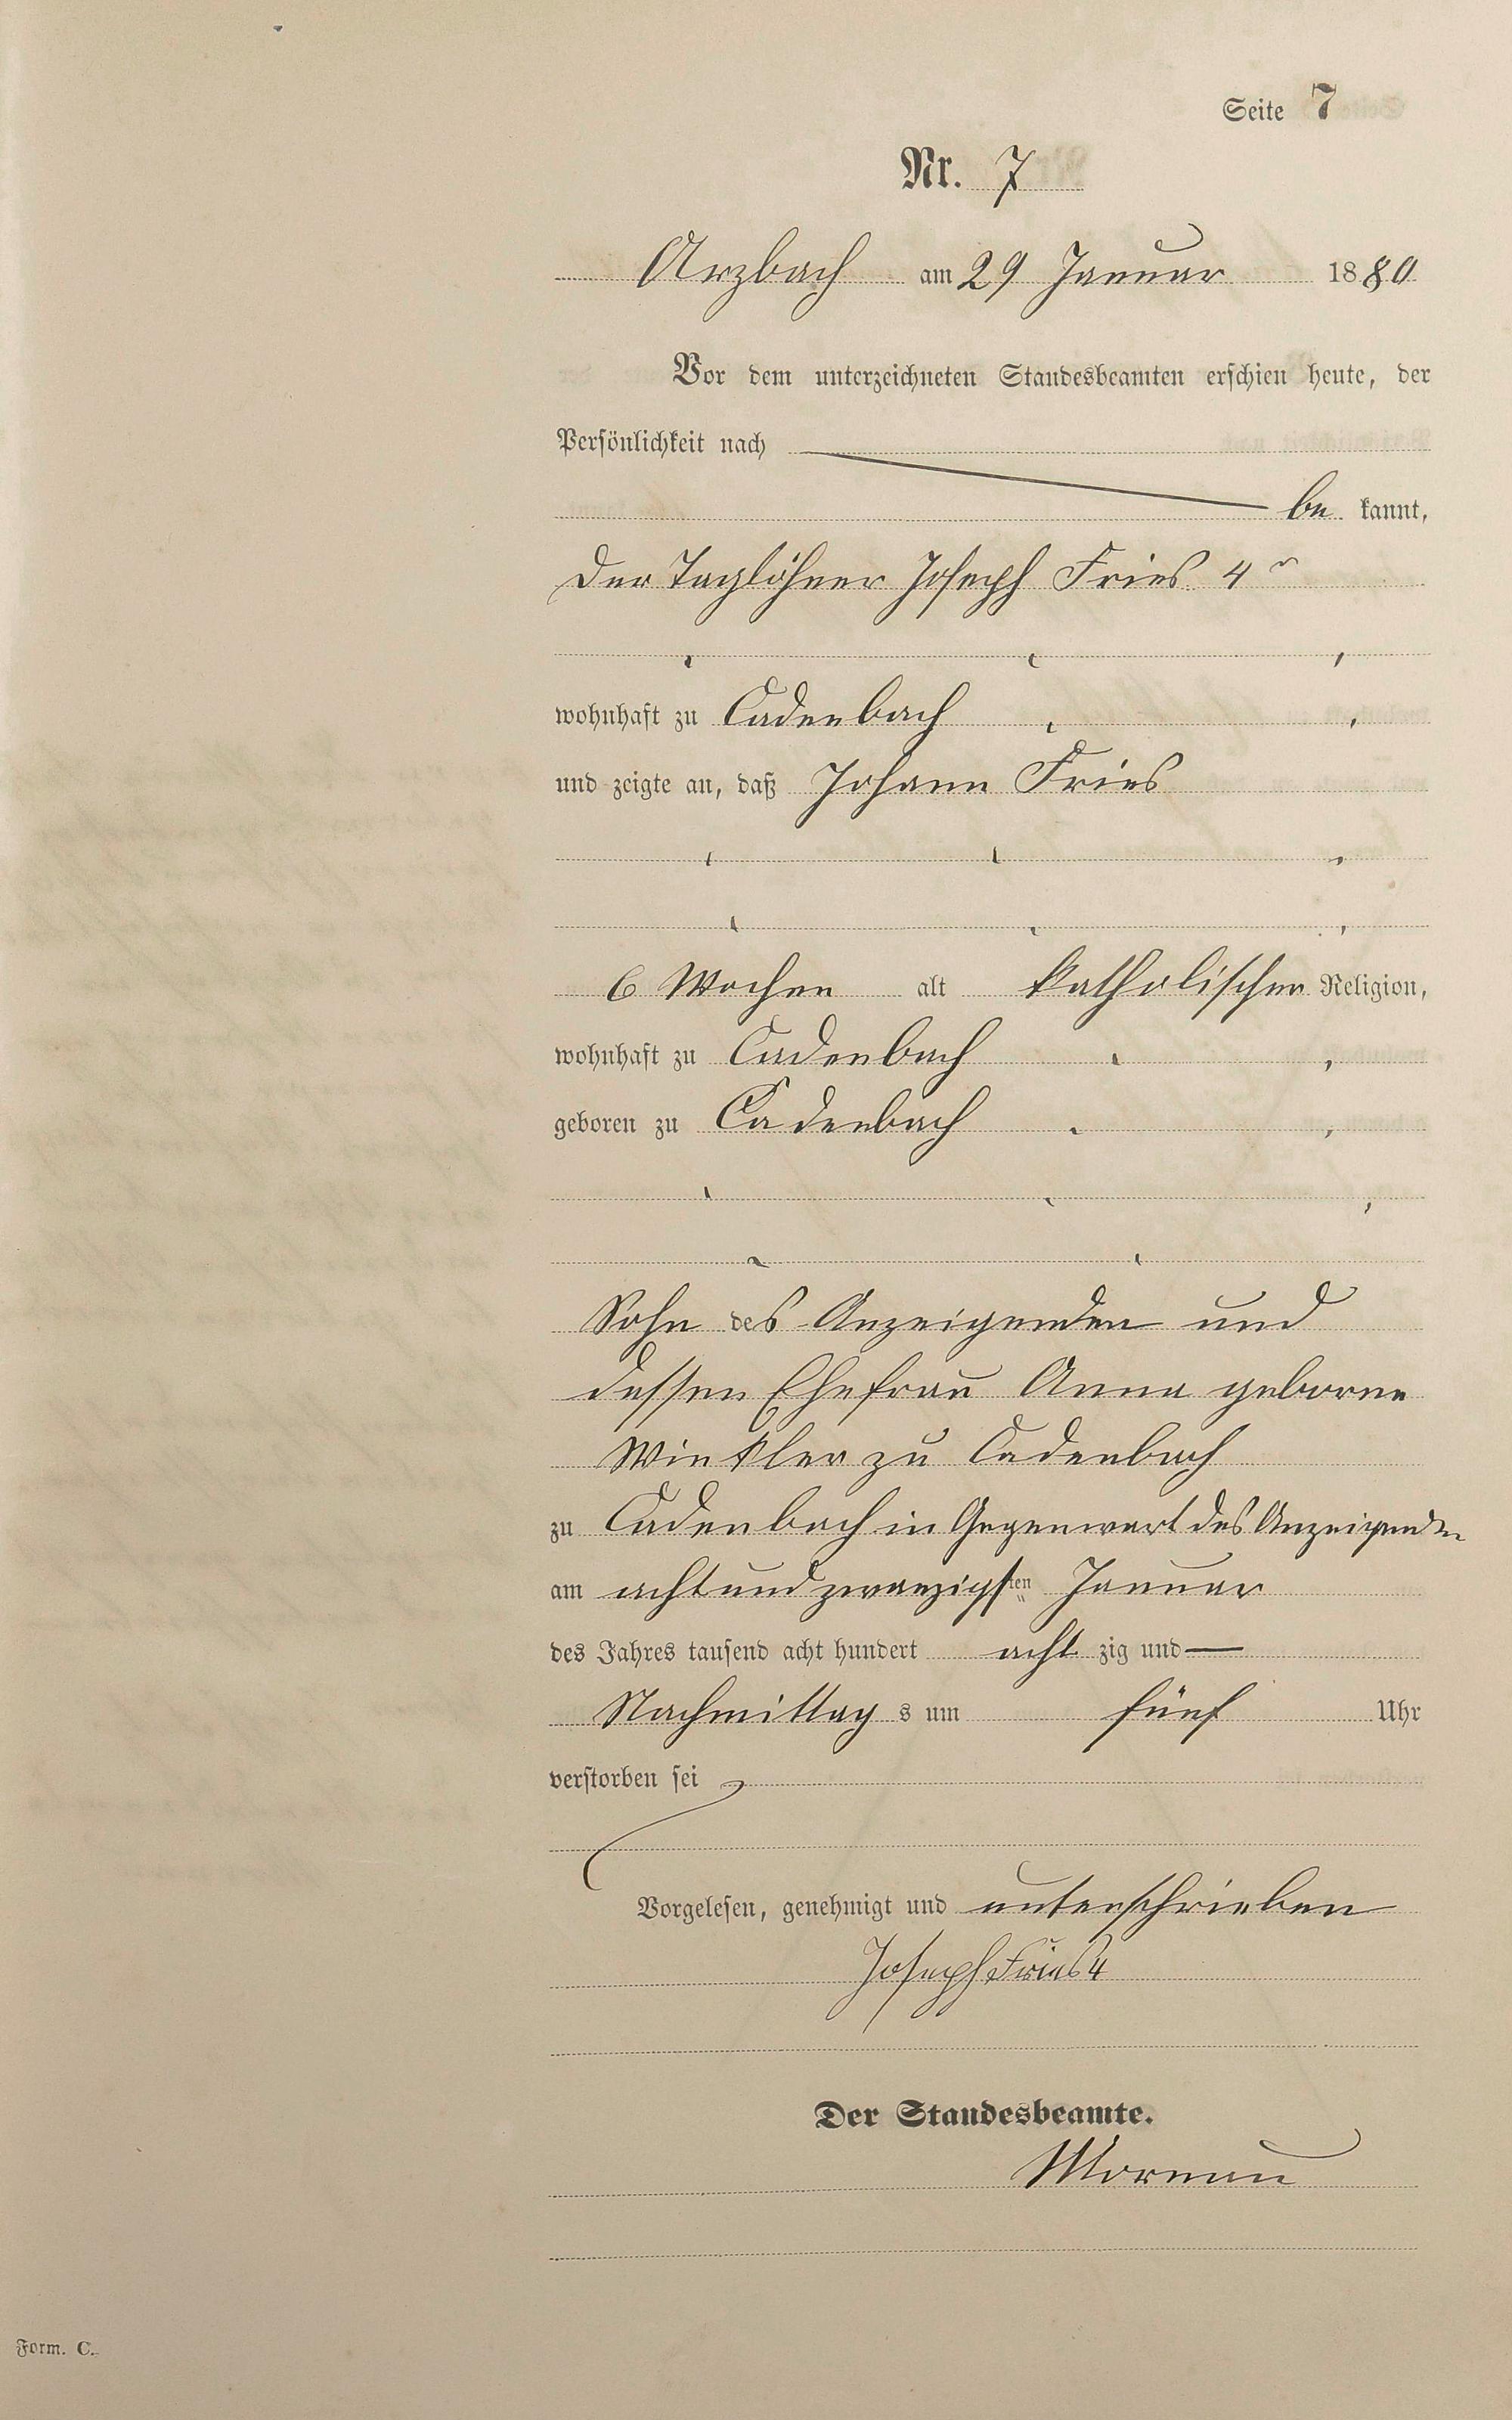 Seite 7
Nr. 7
Arzbach am 29 Januar 1880
Vor dem unterzeichneten Standesbeamten erschien heute, der
Persönlichkeit nach
be kannt,
der Taglöhner Joseph Fries 4r
wohnhaft zu Cadenbach
und zeigte an, daß Johann Fries
6 Wochen alt katholischer Religion,
wohnhaft zu Cadenbach
geboren zu Cadenbach
Sohn des Anzeigenden und
dessen Ehefrau Anna geborne
Winkler zu Cadenbach
zu Cadenbach in Gegenwart des Anzeigenden
am achtundzwanzigsten Januar
des Jahres tausend acht hundert acht zig und —
Nachmittag s um fünf Uhr
verstorben sei
Vorgelesen, genehmigt und unterschrieben
Joseph Fries 4
Der Standesbeamte.
Moreau
Form. C.